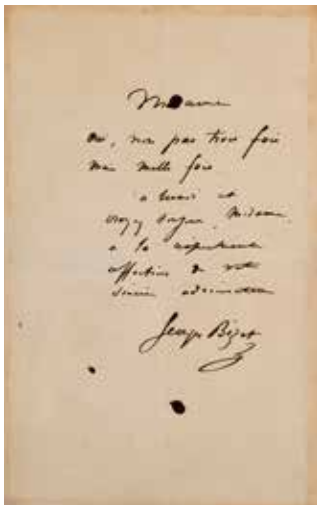 Madame
non pas trois fois
mais mille fois
à et
croyez toujours, Madame
à la respectueuse
affection de votre
sincère admirateur
Georges Bizet